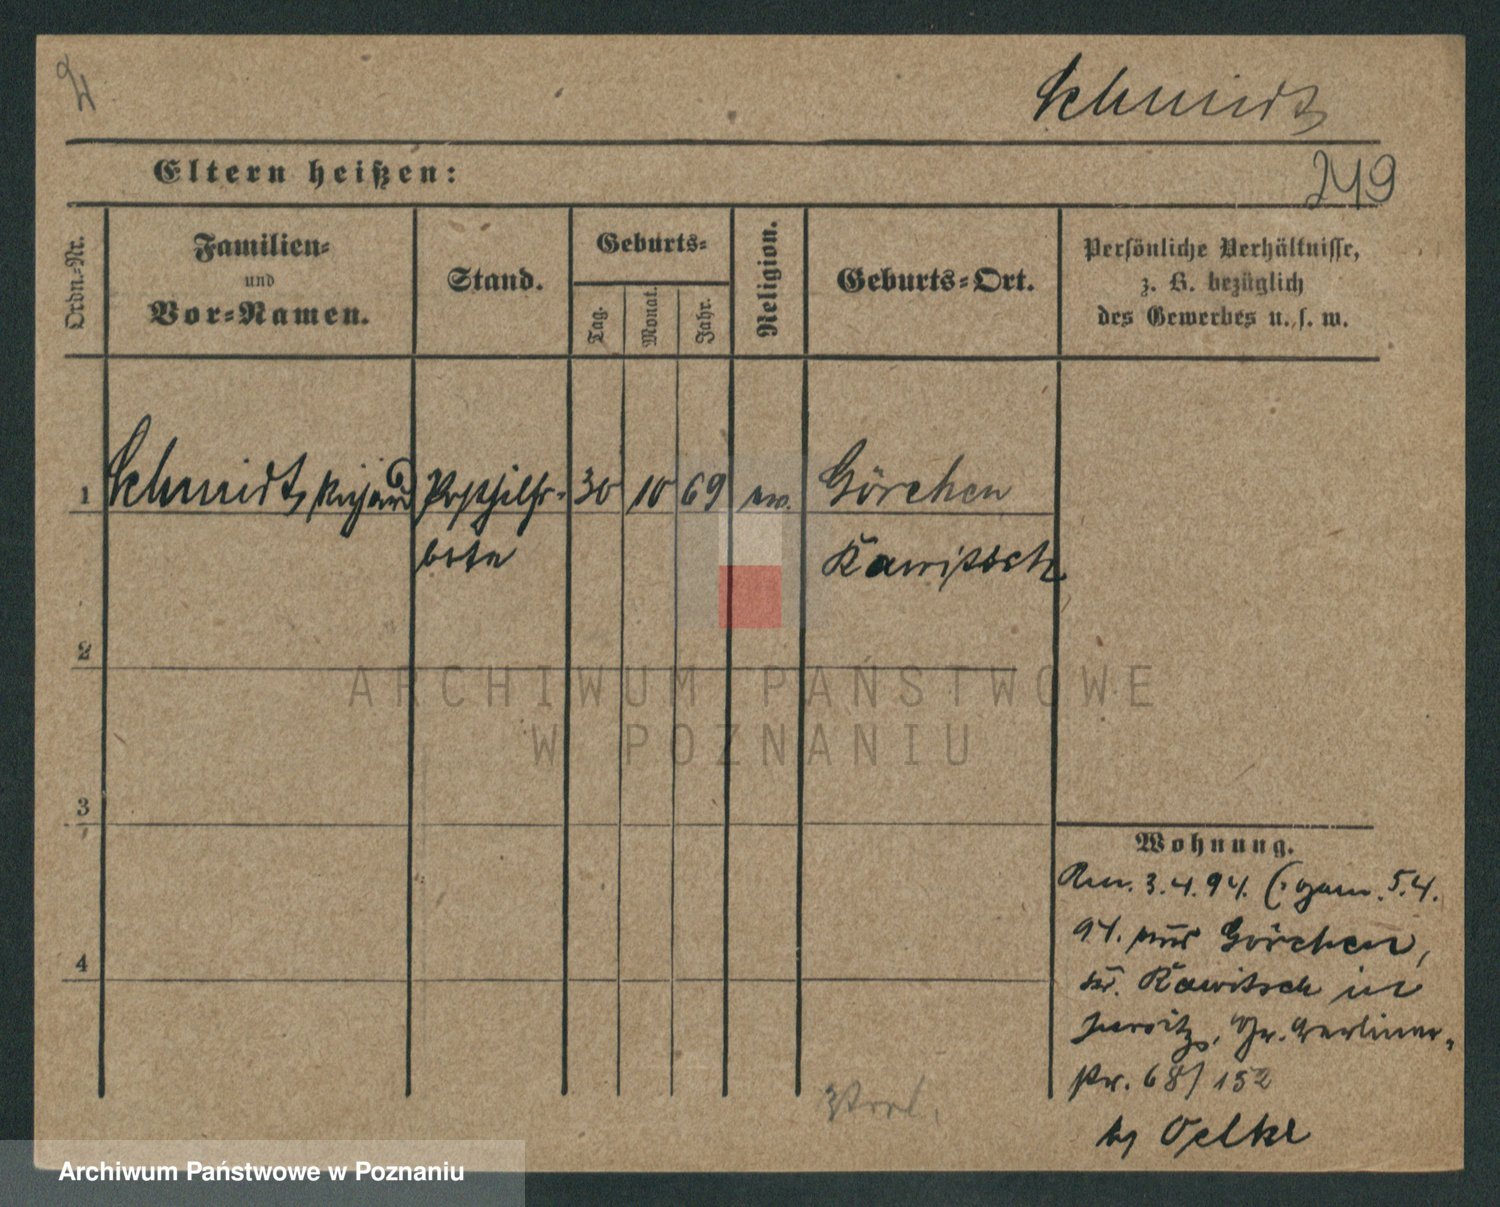 Schmidt
249
Eltern heißen:
Ordn.-Nr.
Familien-
und
Vor-Namen.
Stand.
Geburts-
Tag.
Monat.
Jahr.
Religion.
Geburts-Ort.
Persönliche Verhältnisse,
z. B. bezüglich
des Gewerbes u. s. w.
1 Schmidt, Richard Posthilfs- 30 10 69 ev. Görchen
bote Rawitsch
2
3
4
Wohnung.
Am. 3.4.94. (: gem. 5.4.
94. aus Görchen,
Kr. Rawitsch in
Jersitz, Gr. Berliner-
str. 68/152
by Oelke
ARCHIWUM PAŃSTWOWE
W POZNANIU
Archiwum Państwowe w Poznaniu